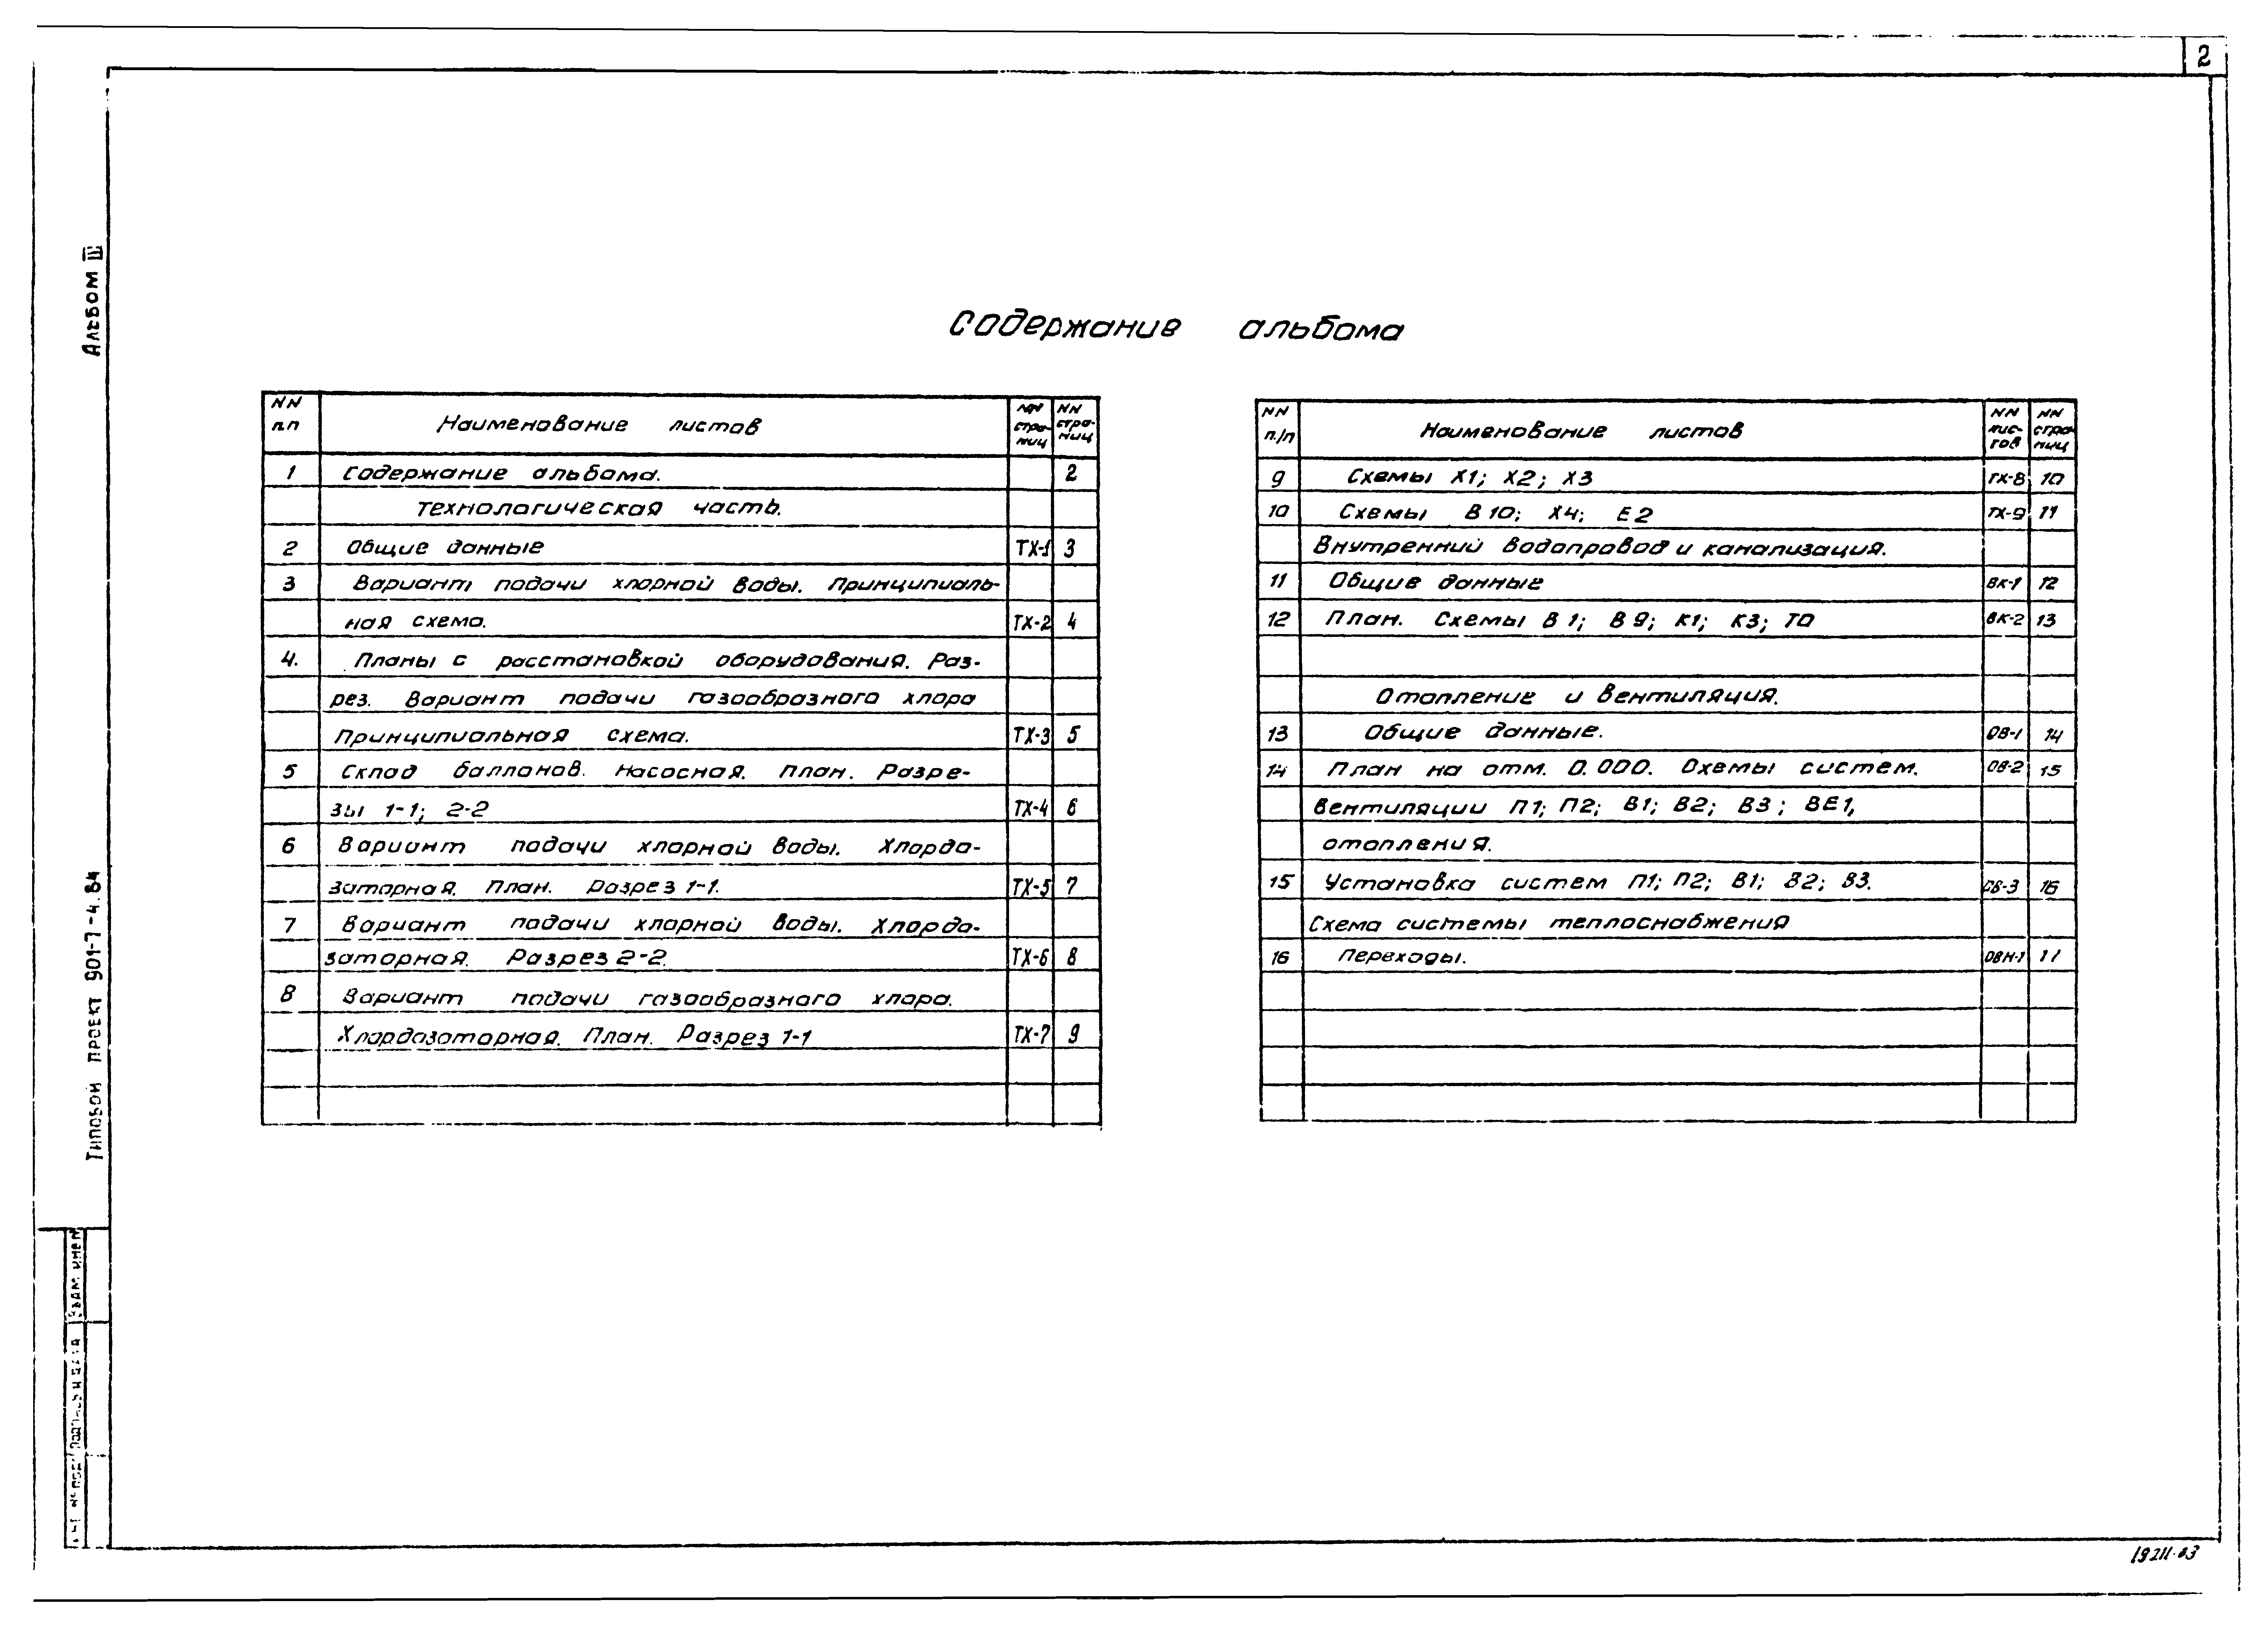 2
Альбом III
Типовой проект 901-7-4.84
Содержание альбома
NN п.п Наименование листов NN страниц NN страниц
1 Содержание альбома. 2
Технологическая часть.
2 Общие данные ТХ-1 3
3 Вариант подачи хлорной воды. Принципиаль-
ная схема. ТХ-2 4
4. Планы с расстановкой оборудования. Раз-
рез. Вариант подачи газообразного хлора
Принципиальная схема. ТХ-3 5
5 Склад баллонов. Насосная. План. Разре-
зы 1-1; 2-2 ТХ-4 6
6 Вариант подачи хлорной воды. Хлорда-
заторная. План. Разрез 1-1. ТХ-5 7
7 Вариант подачи хлорной воды. Хлорда-
заторная. Разрез 2-2. ТХ-6 8
8 Вариант подачи газообразного хлора.
Хлордозаторная. План. Разрез 1-1 ТХ-7 9
NN п./п Наименование листов NN лис-тов NN страниц
9 Схемы Х1; Х2; Х3 ТХ-8 10
10 Схемы В10; Х4; Е2 ТХ-9 11
Внутренний водопровод и канализация.
11 Общие данные ВК-1 12
12 План. Схемы В1; В9; К1; К3; Т0 ВК-2 13
Отопление и вентиляция.
13 Общие данные. ОВ-1 14
14 План на отм. 0.000. Схемы систем. ОВ-2 15
вентиляции П1; П2; В1; В2; В3; ВЕ1,
отопления.
15 Установка систем П1; П2; В1; В2; В3. ОВ-3 16
Схема системы теплоснабжения
16 Переходы. ОВН-1 17
Взам. инв. N
Подпись и дата
N подл
19211-03